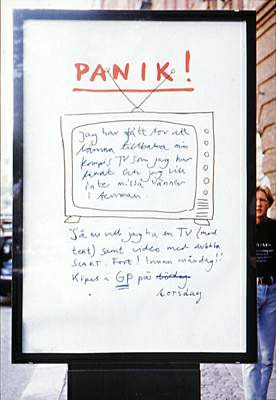 PANIK!
Jag har fått för att
lämna tillbaka min
kompis TV som jag har
lånat och jag vill
inte missa Vänner
i
Så nu vill jag ha en TV (med
text) samt video med dubbla
SCART. Fort! Innan måndag!!
Köpes i GP på
torsdag